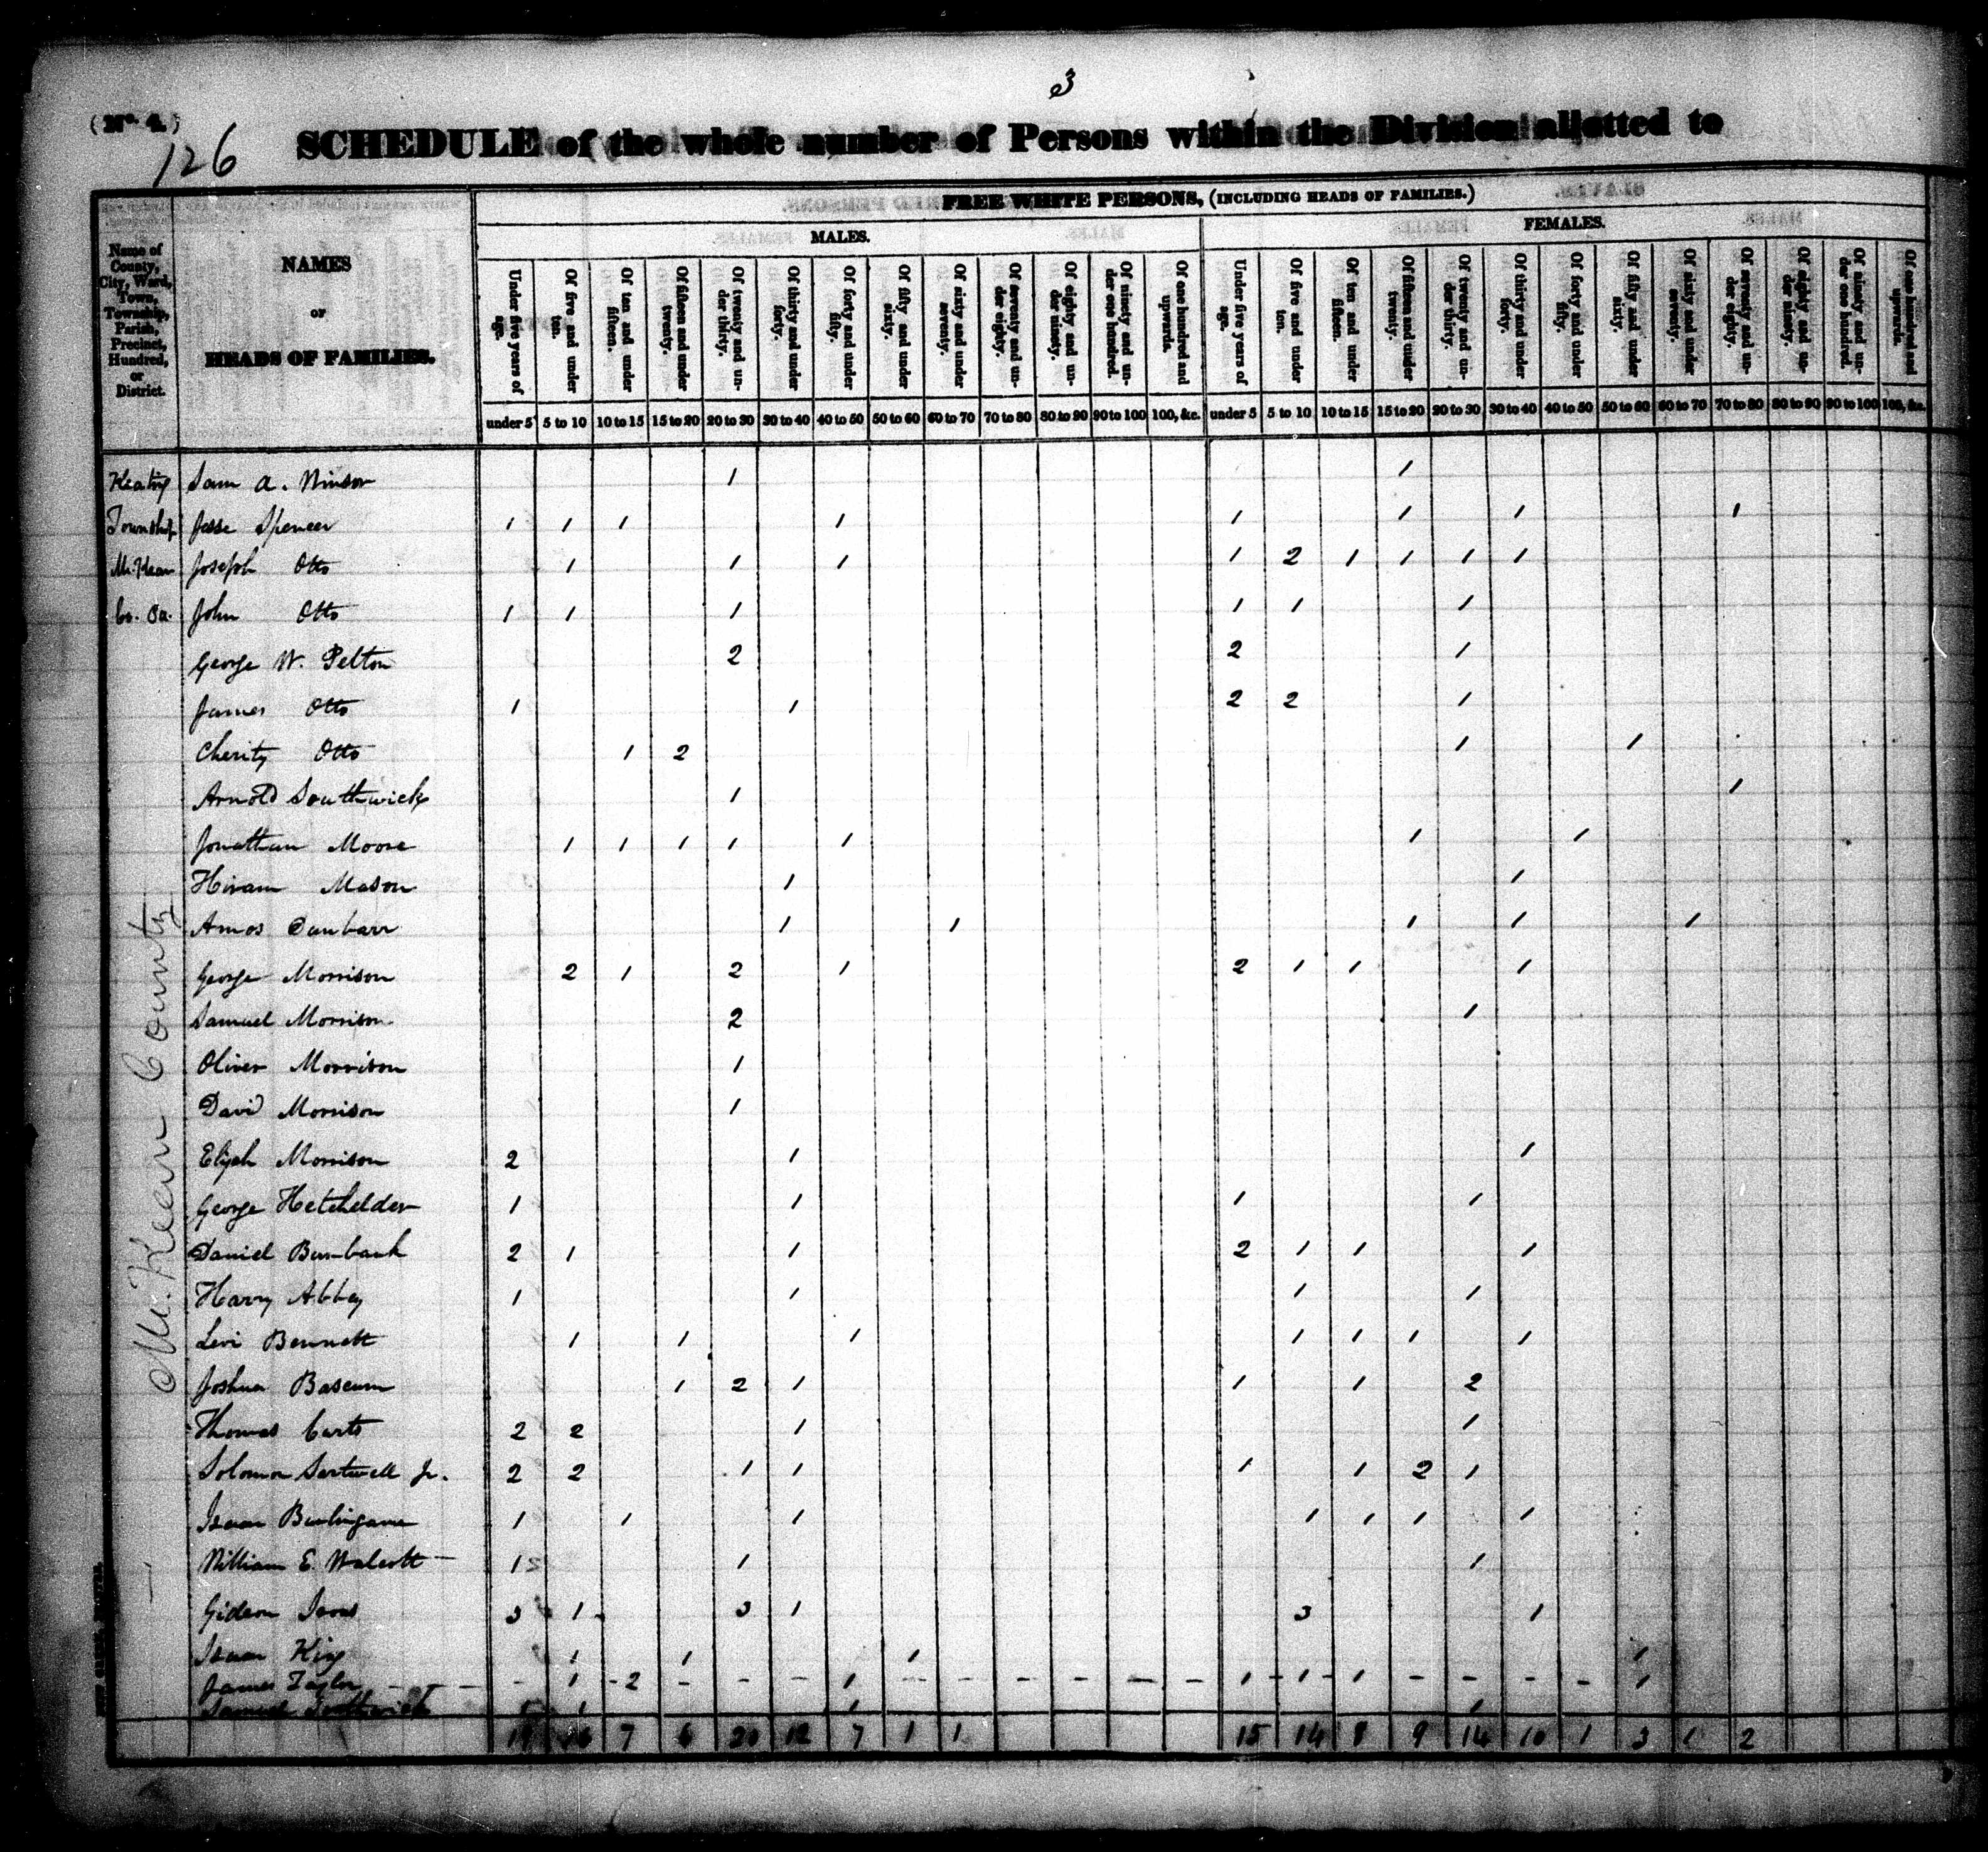 3
(No. 4.)
126
SCHEDULE of the whole number of Persons within the Division allotted to
FREE WHITE PERSONS, (INCLUDING HEADS OF FAMILIES.)
MALES. FEMALES.
Name of County, City, Ward, Town, Township, Parish, Precinct, Hundred, or District.
NAMES
or
HEADS OF FAMILIES.
Under five years of age. Of five and under ten. Of ten and under fifteen. Of fifteen and under twenty. Of twenty and under thirty. Of thirty and under forty. Of forty and under fifty. Of fifty and under sixty. Of sixty and under seventy. Of seventy and under eighty. Of eighty and under ninety. Of ninety and under one hundred. Of one hundred and upwards. Under five years of age. Of five and under ten. Of ten and under fifteen. Of fifteen and under twenty. Of twenty and under thirty. Of thirty and under forty. Of forty and under fifty. Of fifty and under sixty. Of sixty and under seventy. Of seventy and under eighty. Of eighty and under ninety. Of ninety and under one hundred. Of one hundred and upwards.
under 5 5 to 10 10 to 15 15 to 20 20 to 30 30 to 40 40 to 50 50 to 60 60 to 70 70 to 80 80 to 90 90 to 100 100, &c. under 5 5 to 10 10 to 15 15 to 20 20 to 30 30 to 40 40 to 50 50 to 60 60 to 70 70 to 80 80 to 90 90 to 100 100, &c.
Keating Sam A. Winsor 1 1
Township Jesse Spencer 1 1 1 1 1 1 1 1
McKean Joseph Otto 1 1 1 1 2 1 1 1 1
Co. Pa. John Otto 1 1 1 1 1 1
George W. Pelton 2 2 1
James Otto 1 1 2 2 1
Cherity Otto 1 2 1 1
Arnold Southwick 1 1
Jonathan Moore 1 1 1 1 1 1 1
Hiram Mason 1 1
Amos Dunbarr 1 1 1 1 1
George Morrison 2 1 2 1 2 1 1 1
Samuel Morrison 2 1
Oliver Morrison 1
David Morrison 1
Elijah Morrison 2 1 1
George Hetchelder 1 1 1 1
Daniel Burnbank 2 1 1 2 1 1 1
Harry Abbey 1 1 1 1
Levi Bennett 1 1 1 1 1 1 1
Joshua Bascum 1 2 1 1 1 2
Thomas Carts 2 2 1 1
Solomon Sartwell Jr. 2 2 1 1 1 1 2 1
Isaac Burlingame 1 1 1 1 1 1 1
William E. Walcott 1 1 1
Gideon Irons 3 1 3 1 3 1
Isaac King 1 1 1 1
James Taylor 1 2 1 1 1 1 1
Samuel Southwick 1 1 1
16 7 6 20 12 7 1 1 15 14 8 9 14 10 1 3 1 2
McKean County